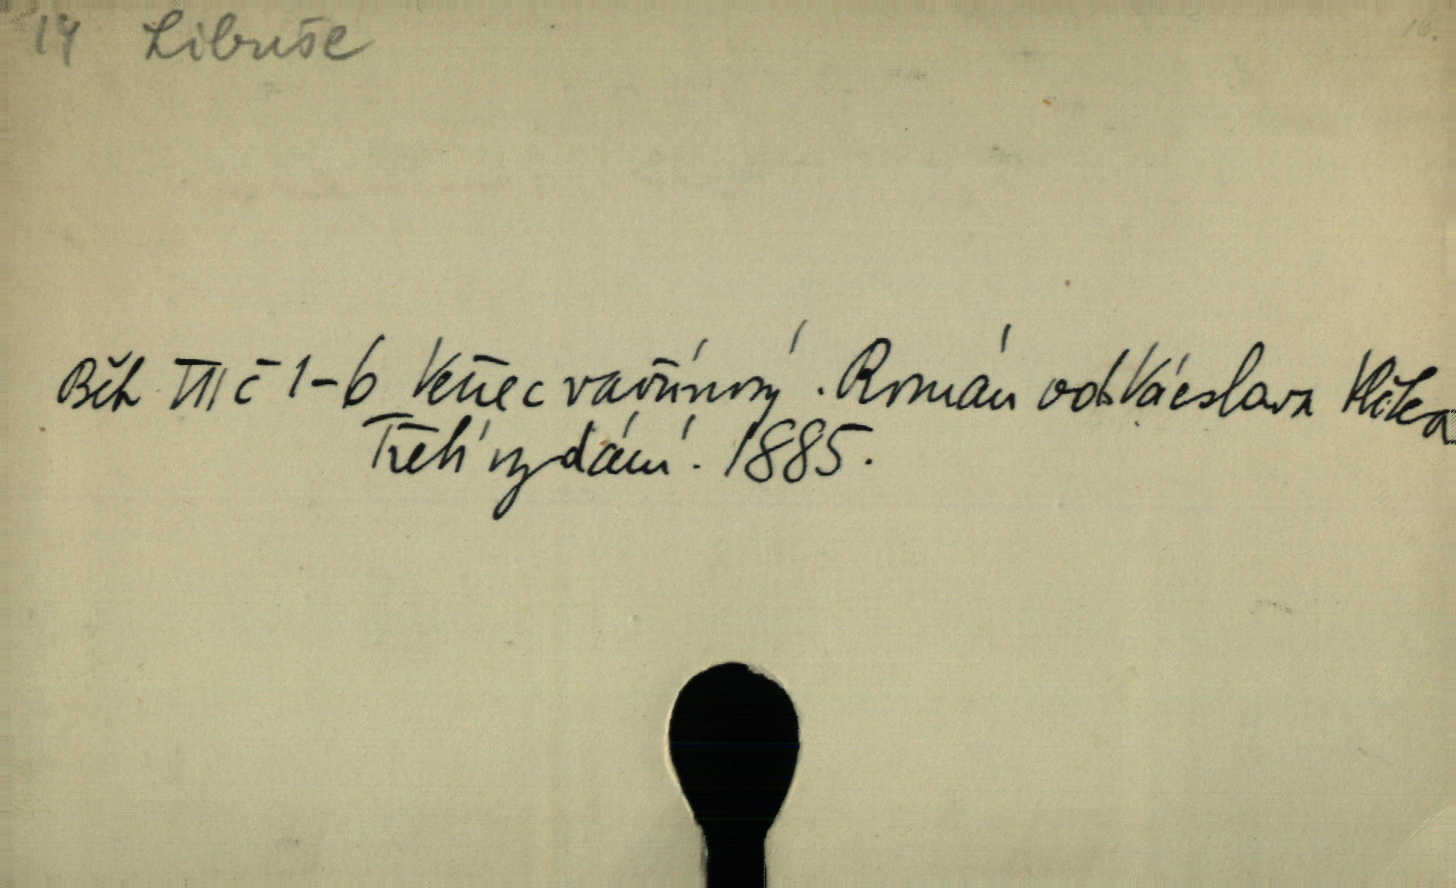 14 Libuše
10.
Běh VIII č 1-6 Věnec vavřínový. Román od Václava Vlčka
Třetí vydání. 1885.